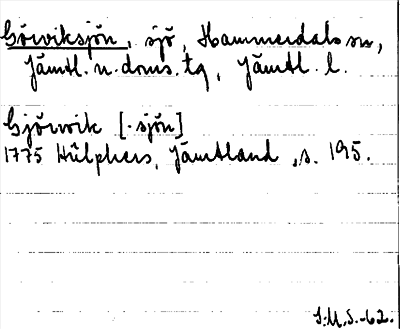 Görviksjön, sjö, Hammerdals sn,
Jämtl. n. doms. tg, Jämtl. l.
Gjörwik [-sjön]
1775 Hülphers, Jämtland, s. 195.
I.M.S.-62.